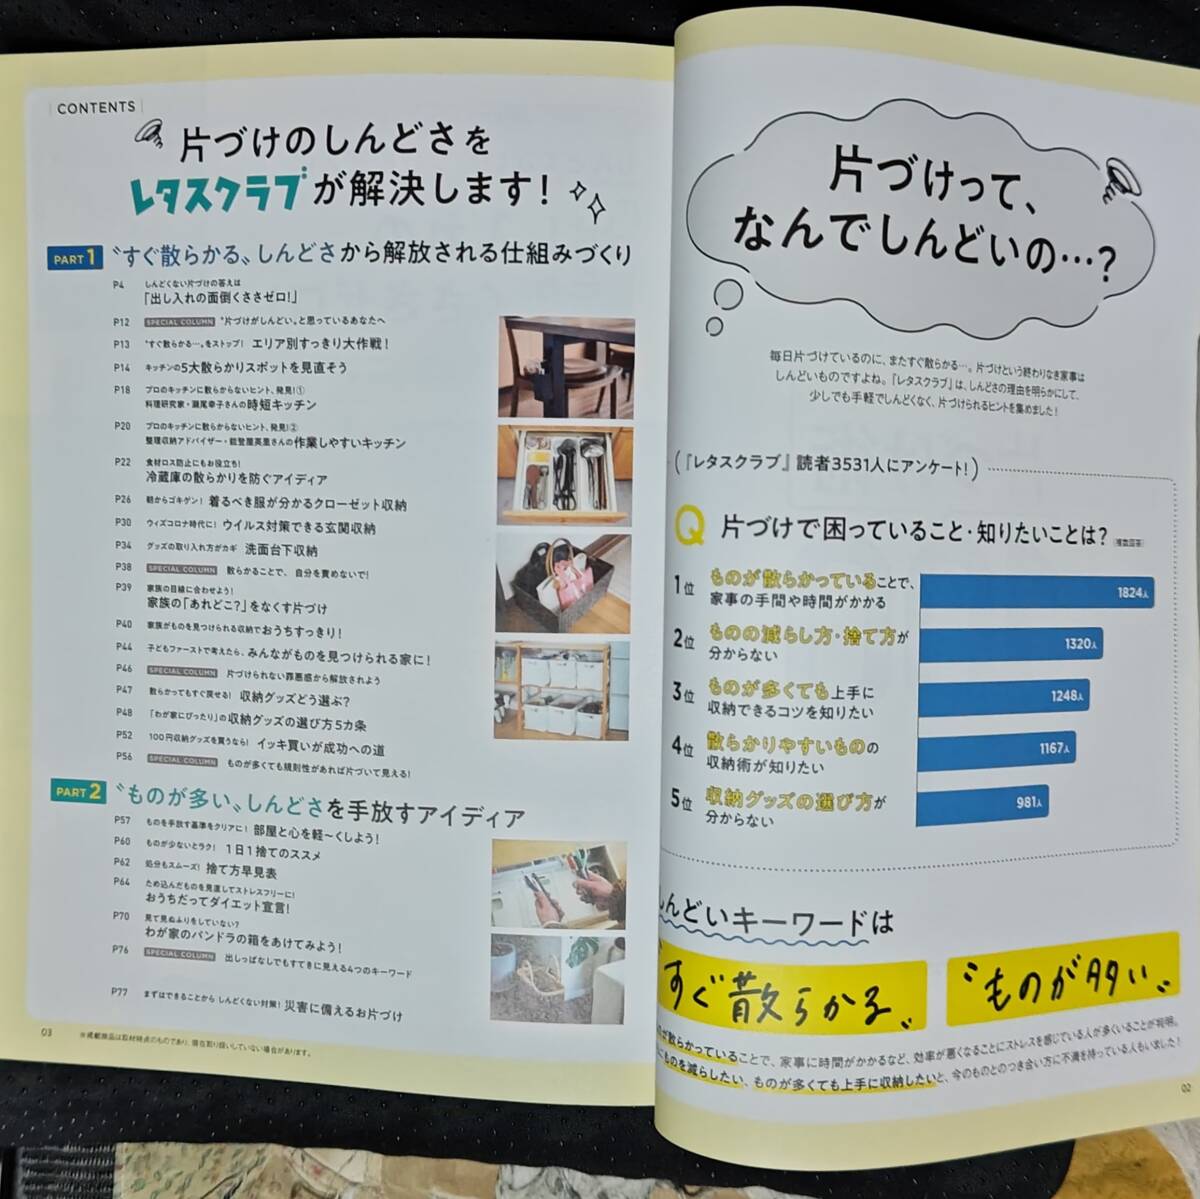 CONTENTS
片づけのしんどさを
レタスクラブが解決します！
PART1 〝すぐ散らかる〟しんどさから解放される仕組みづくり
P4 しんどくない片づけの答えは
「出し入れの面倒くささゼロ！」
P12 SPECIAL COLUMN "片づけがしんどい。と思っているあなたへ
P13 "すぐ散らかる…。をストップ！ エリア別すっきり大作戦！
P14 キッチンの5大散らかりスポットを見直そう
P18 プロのキッチンに散らからないヒント、発見！①
料理研究家・瀬尾幸子さんの時短キッチン
P20 プロのキッチンに散らからないヒント、発見！②
整理収納アドバイザー・能登屋英里さんの作業しやすいキッチン
P22 食材ロス防止にもお役立ち！
冷蔵庫の散らかりを防ぐアイディア
P26 朝からゴキゲン！ 着るべき服が分かるクローゼット収納
P30 ウィズコロナ時代に！ ウイルス対策できる玄関収納
P34 グッズの取り入れ方がカギ 洗面台下収納
P38 SPECIAL COLUMN 散らかることで、自分を責めないで！
P39 家族の目線に合わせよう！
家族の「あれどこ？」をなくす片づけ
P40 家族がものを見つけられる収納でおうちすっきり！
P44 子どもファーストで考えたら、みんながものを見つけられる家に！
P46 SPECIAL COLUMN 片づけられない罪悪感から解放されよう
P47 散らかってもすぐ戻せる！ 収納グッズどう選ぶ？
P48 「わが家にぴったり」の収納グッズの選び方5カ条
P52 100円収納グッズを買うなら！ イッキ買いが成功への道
P56 SPECIAL COLUMN ものが多くても規則性があれば片づいて見える！
PART2 〝ものが多い〟しんどさを手放すアイディア
P57 ものを手放す基準をクリアに！ 部屋と心を軽〜くしよう！
P60 ものが少ないとラク！ 1日1捨てのススメ
P62 処分もスムーズ！ 捨て方早見表
P64 ため込んだものを見直してストレスフリーに！
おうちだってダイエット宣言！
P70 見て見ぬふりをしていない？
わが家のパンドラの箱をあけてみよう！
P76 SPECIAL COLUMN 出しっぱなしでもすてきに見える4つのキーワード
P77 まずはできることから しんどくない対策！ 災害に備えるお片づけ
03 ※掲載商品は取材時点のものであり、現在取り扱いしていない場合があります。
片づけって、
なんでしんどいの…？
毎日片づけているのに、またすぐ散らかる…。片づけという終わりなき家事は
しんどいものですよね。『レタスクラブ』は、しんどさの理由を明らかにして、
少しでも手軽でしんどくなく、片づけられるヒントを集めました！
『レタスクラブ』読者3531人にアンケート！
Q 片づけで困っていること・知りたいことは？（複数回答）
1位 ものが散らかっていることで、
家事の手間や時間がかかる
1824人
2位 ものの減らし方・捨て方が
分からない
1320人
3位 ものが多くても上手に
収納できるコツを知りたい
1248人
4位 散らかりやすいものの
収納術が知りたい
1167人
5位 収納グッズの選び方が
分からない
981人
しんどいキーワードは
〝すぐ散らかる〟 〝ものが多い〟
が散らかっていることで、家事に時間がかかるなど、効率が悪くなることにストレスを感じている人が多くいることが判明。
ものを減らしたい、ものが多くても上手に収納したいと、今のものとのつき合い方に不満を持っている人もいました！
02